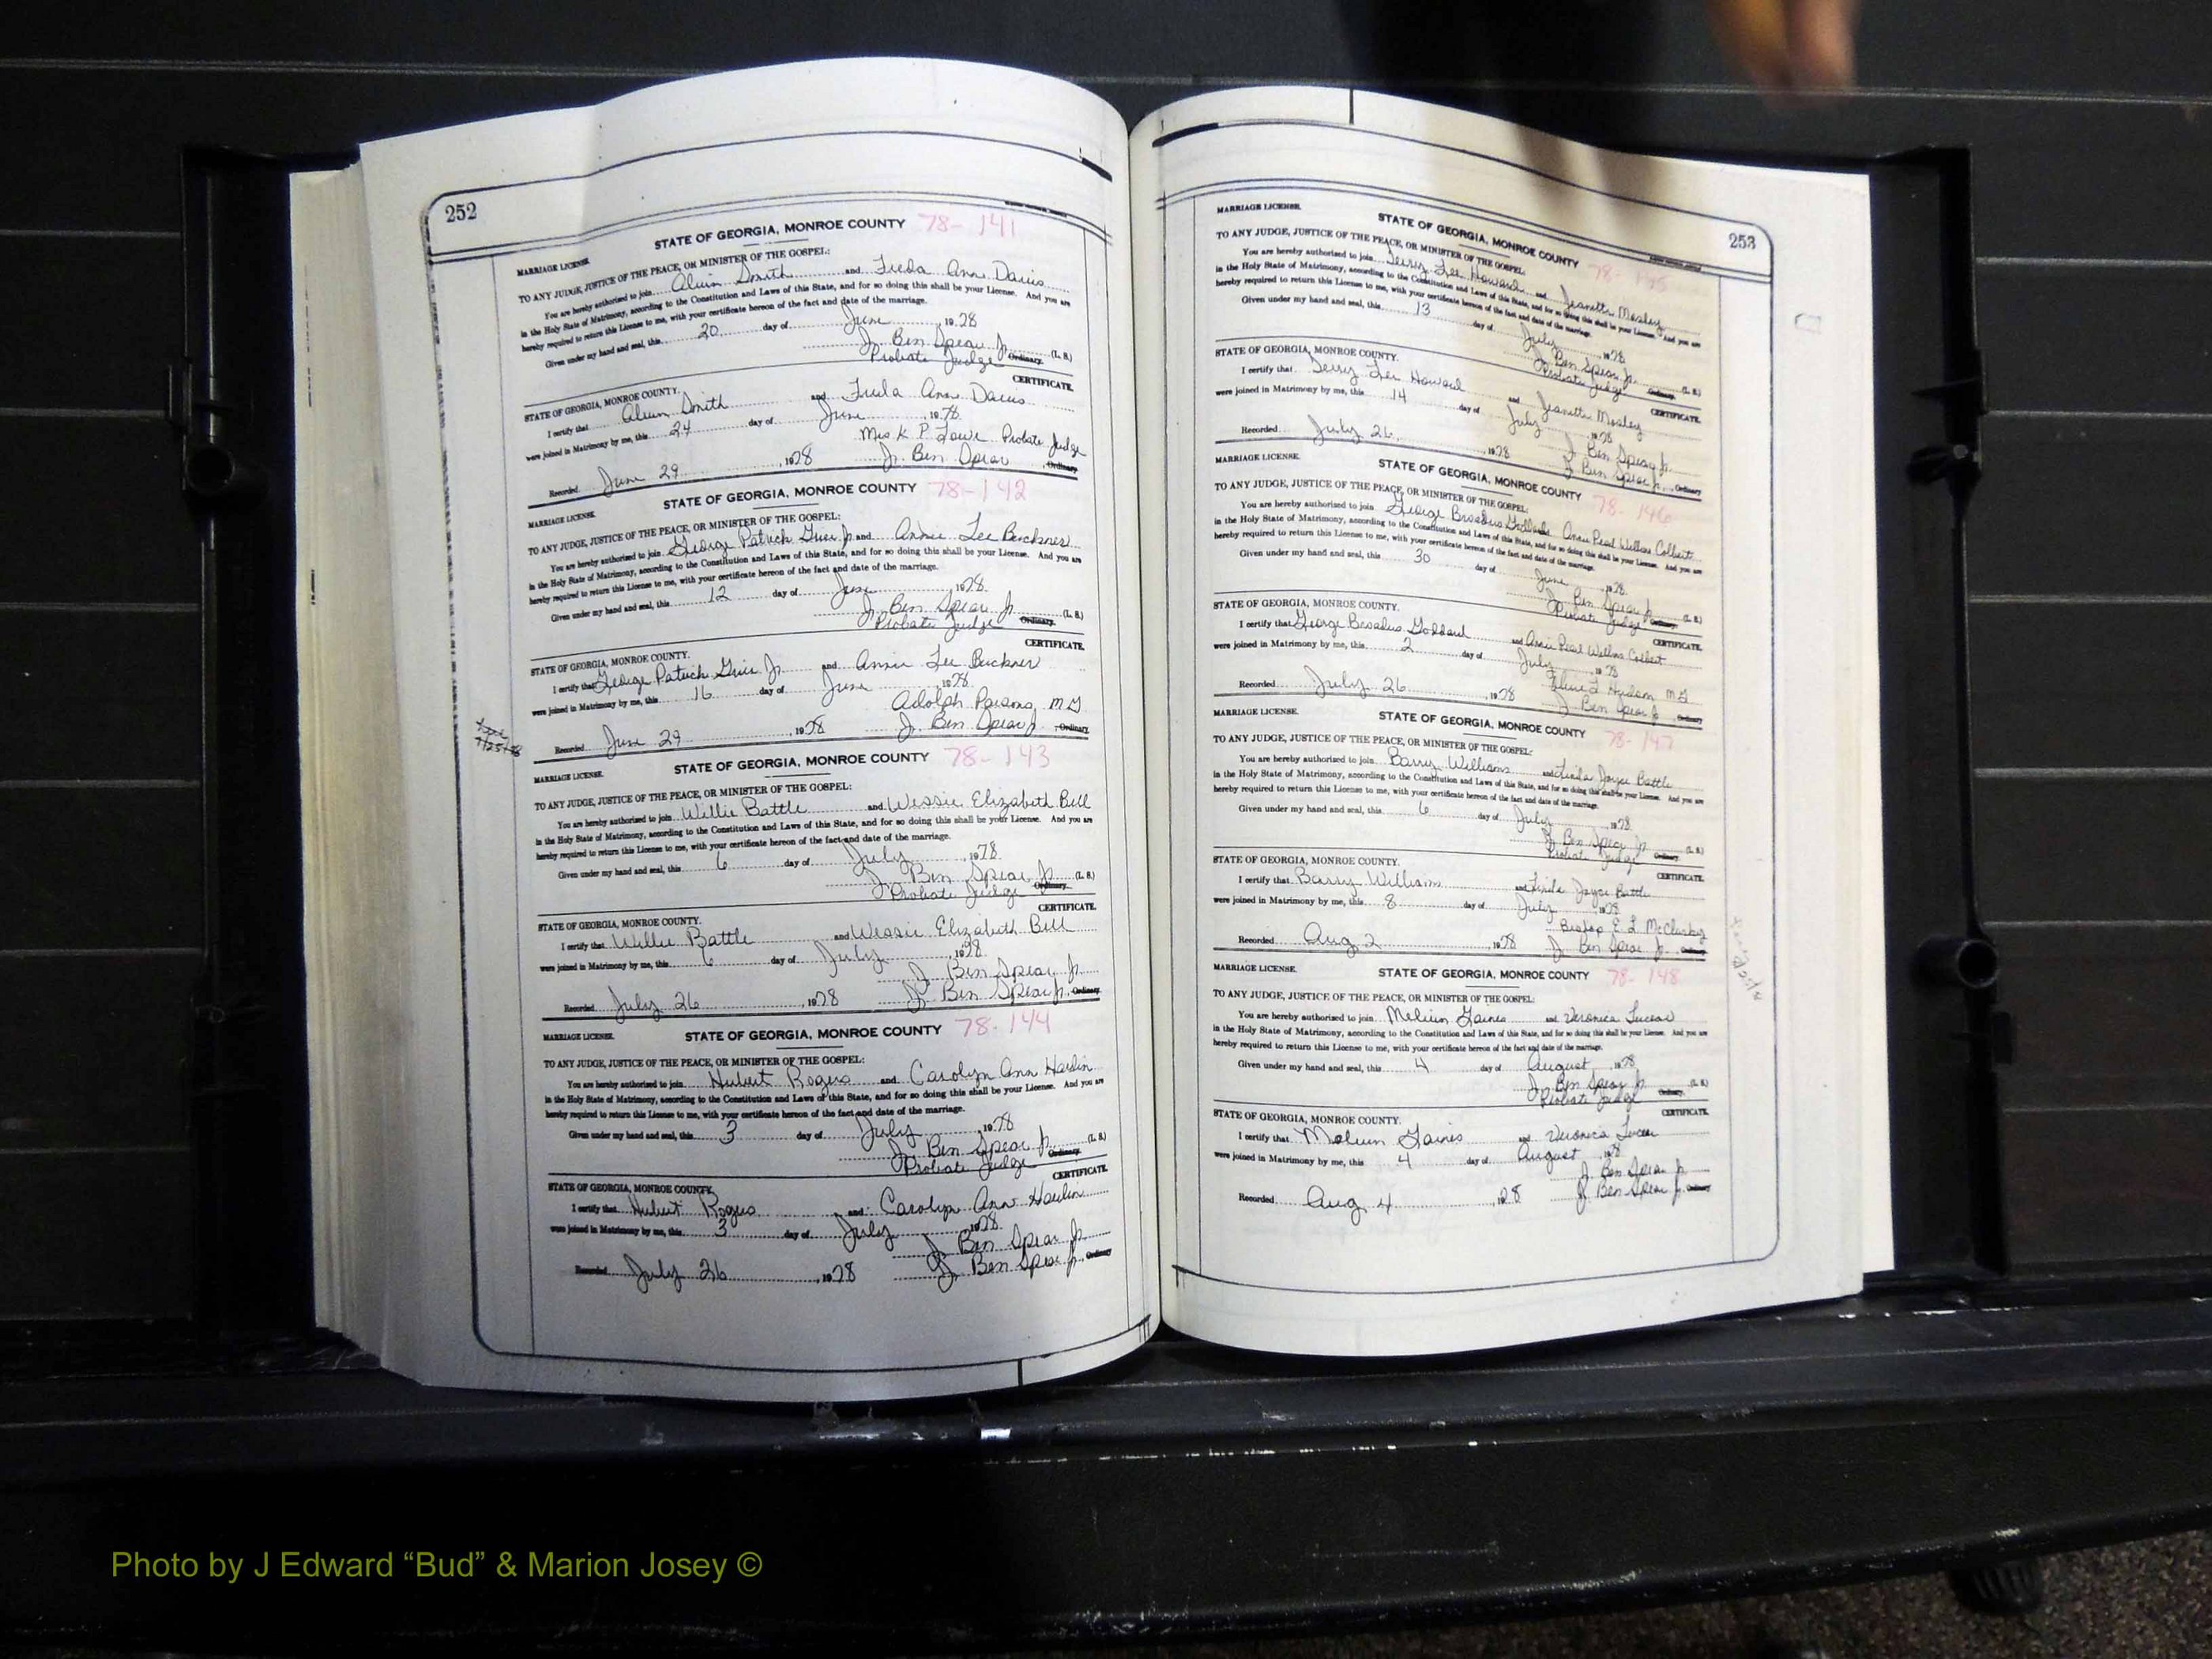 252
STATE OF GEORGIA, MONROE COUNTY 78-141
MARRIAGE LICENSE.
TO ANY JUDGE, JUSTICE OF THE PEACE, OR MINISTER OF THE GOSPEL:
You are hereby authorized to join Alvin Smith and Freda Ann Davis
in the Holy State of Matrimony, according to the Constitution and Laws of this State, and for so doing this shall be your License. And you are
hereby required to return this License to me, with your certificate hereon of the fact and date of the marriage.
Given under my hand and seal, this 20 day of June, 1978
J. Ben Spear Jr. (L. S.)
Probate Judge Ordinary.
CERTIFICATE.
STATE OF GEORGIA, MONROE COUNTY.
I certify that Alvin Smith and Freda Ann Davis
were joined in Matrimony by me, this 24 day of June, 1978.
Mrs K P Lowe Probate Judge
Recorded June 29, 1978 J. Ben Spear, Ordinary
STATE OF GEORGIA, MONROE COUNTY 78-142
MARRIAGE LICENSE.
TO ANY JUDGE, JUSTICE OF THE PEACE, OR MINISTER OF THE GOSPEL:
You are hereby authorized to join George Patrick Grier Jr. and Annie Lee Buckner
in the Holy State of Matrimony, according to the Constitution and Laws of this State, and for so doing this shall be your License. And you are
hereby required to return this License to me, with your certificate hereon of the fact and date of the marriage.
Given under my hand and seal, this 12 day of June, 1978.
J. Ben Spear Jr. (L. S.)
Probate Judge Ordinary.
CERTIFICATE.
STATE OF GEORGIA, MONROE COUNTY.
I certify that George Patrick Grier Jr. and Annie Lee Buckner
were joined in Matrimony by me, this 16 day of June, 1978.
Adolph Parsons, MG
7/25/78
Recorded June 29, 1978 J. Ben Spear Jr., Ordinary
STATE OF GEORGIA, MONROE COUNTY 78-143
MARRIAGE LICENSE.
TO ANY JUDGE, JUSTICE OF THE PEACE, OR MINISTER OF THE GOSPEL:
You are hereby authorized to join Willie Battle and Wessie Elizabeth Bell
in the Holy State of Matrimony, according to the Constitution and Laws of this State, and for so doing this shall be your License. And you are
hereby required to return this License to me, with your certificate hereon of the fact and date of the marriage.
Given under my hand and seal, this 6 day of July, 1978.
J. Ben Spear Jr. (L. S.)
Probate Judge Ordinary.
CERTIFICATE.
STATE OF GEORGIA, MONROE COUNTY.
I certify that Willie Battle and Wessie Elizabeth Bell
were joined in Matrimony by me, this 6 day of July, 1978.
J. Ben Spear Jr.
Recorded July 26, 1978 J. Ben Spear Jr., Ordinary
STATE OF GEORGIA, MONROE COUNTY 78-144
MARRIAGE LICENSE.
TO ANY JUDGE, JUSTICE OF THE PEACE, OR MINISTER OF THE GOSPEL:
You are hereby authorized to join Hubert Rogers and Carolyn Ann Hardin
in the Holy State of Matrimony, according to the Constitution and Laws of this State, and for so doing this shall be your License. And you are
hereby required to return this License to me, with your certificate hereon of the fact and date of the marriage.
Given under my hand and seal, this 3 day of July, 1978
J. Ben Spear Jr. (L. S.)
Probate Judge Ordinary.
CERTIFICATE.
STATE OF GEORGIA, MONROE COUNTY.
I certify that Hubert Rogers and Carolyn Ann Hardin
were joined in Matrimony by me, this 3 day of July, 1978.
J. Ben Spear Jr.
Recorded July 26, 1978 J. Ben Spear Jr., Ordinary
253
MARRIAGE LICENSE.
STATE OF GEORGIA, MONROE COUNTY 78-145
TO ANY JUDGE, JUSTICE OF THE PEACE, OR MINISTER OF THE GOSPEL:
You are hereby authorized to join Terry Lee Howard and Jeanette Mosley
in the Holy State of Matrimony, according to the Constitution and Laws of this State, and for so doing this shall be your License. And you are
hereby required to return this License to me, with your certificate hereon of the fact and date of the marriage.
Given under my hand and seal, this 13 day of July, 1978
J. Ben Spear Jr. (L. S.)
Probate Judge Ordinary.
CERTIFICATE.
STATE OF GEORGIA, MONROE COUNTY.
I certify that Terry Lee Howard and Jeanette Mosley
were joined in Matrimony by me, this 14 day of July, 1978
J. Ben Spear Jr.
Recorded July 26, 1978 J. Ben Spear Jr., Ordinary
MARRIAGE LICENSE.
STATE OF GEORGIA, MONROE COUNTY 78-146
TO ANY JUDGE, JUSTICE OF THE PEACE, OR MINISTER OF THE GOSPEL:
You are hereby authorized to join George Broadus Goddard Annie Pearl Watkins Colbert
in the Holy State of Matrimony, according to the Constitution and Laws of this State, and for so doing this shall be your License. And you are
hereby required to return this License to me, with your certificate hereon of the fact and date of the marriage.
Given under my hand and seal, this 30 day of June, 1978.
J. Ben Spear Jr. (L. S.)
Probate Judge Ordinary.
CERTIFICATE.
STATE OF GEORGIA, MONROE COUNTY.
I certify that George Broadus Goddard and Annie Pearl Watkins Colbert
were joined in Matrimony by me, this 2 day of July, 1978
L Hudson MG
Recorded July 26, 1978 J. Ben Spear Jr., Ordinary
MARRIAGE LICENSE.
STATE OF GEORGIA, MONROE COUNTY 78-147
TO ANY JUDGE, JUSTICE OF THE PEACE, OR MINISTER OF THE GOSPEL:
You are hereby authorized to join Barry Williams and Linda Joyce Battle
in the Holy State of Matrimony, according to the Constitution and Laws of this State, and for so doing this shall be your License. And you are
hereby required to return this License to me, with your certificate hereon of the fact and date of the marriage.
Given under my hand and seal, this 6 day of July, 1978.
J. Ben Spear Jr. (L. S.)
Probate Judge Ordinary.
CERTIFICATE.
STATE OF GEORGIA, MONROE COUNTY.
I certify that Barry Williams and Linda Joyce Battle
were joined in Matrimony by me, this 8 day of July, 1978.
Bishop E. L McCluskey
Recorded Aug 2, 1978 J. Ben Spear Jr., Ordinary
MARRIAGE LICENSE.
STATE OF GEORGIA, MONROE COUNTY 78-148
TO ANY JUDGE, JUSTICE OF THE PEACE, OR MINISTER OF THE GOSPEL:
You are hereby authorized to join Melvin Gaines and Veronica
in the Holy State of Matrimony, according to the Constitution and Laws of this State, and for so doing this shall be your License. And you are
hereby required to return this License to me, with your certificate hereon of the fact and date of the marriage.
Given under my hand and seal, this 4 day of August, 1978
J. Ben Spear Jr. (L. S.)
Probate Judge
CERTIFICATE.
STATE OF GEORGIA, MONROE COUNTY.
I certify that Melvin Gaines and Veronica
were joined in Matrimony by me, this 4 day of August, 1978
J. Ben Spear Jr.
Recorded Aug 4, 1978 J. Ben Spear Jr., Ordinary
Photo by J Edward “Bud” & Marion Josey ©